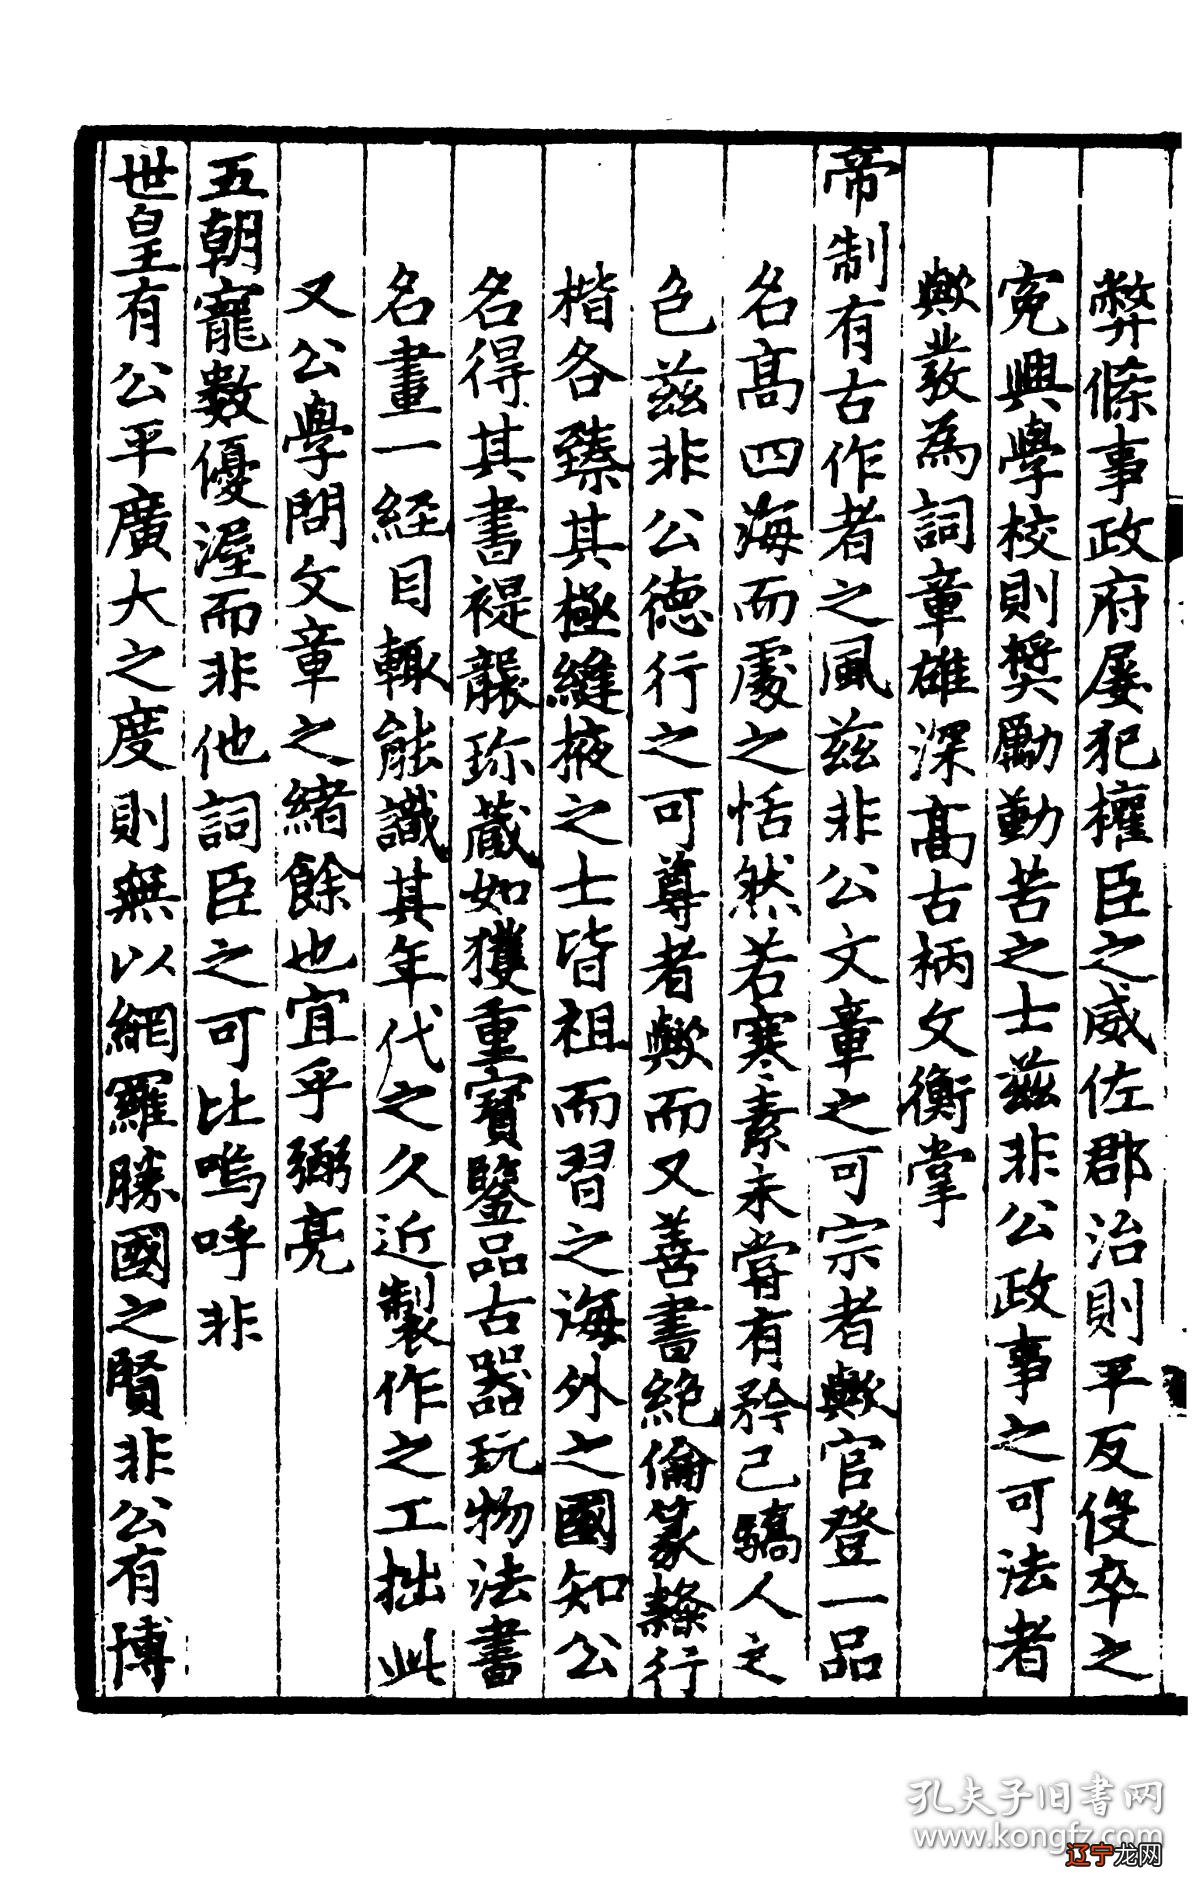 弊條事政府屢犯權臣之威佐郡治則平反伇卒之
寃興學校則奬勵勤苦之士兹非公政事之可法者
歟發為詞章雄深髙古柄文衡掌
帝制有古作者之風兹非公文章之可宗者歟官登一品
名髙四海而處之恬然若寒素未甞有矜己驕人之
色兹非公德行之可尊者歟而又善書絶倫篆𨽻行
楷各臻其極縫掖之士皆祖而習之海外之國知公
名得其書禔襲珎蔵如獲重寳鑒品古器玩物法書
名畫一経目輙能識其年代之久近製作之工拙此
又公學問文章之緒餘也宜乎弼亮
五朝寵數優渥而非他詞臣之可比嗚呼非
世皇有公平廣大之度則無以網羅勝國之賢非公有博
孔夫子旧書网
www.kongfz.com
辽宁龙网